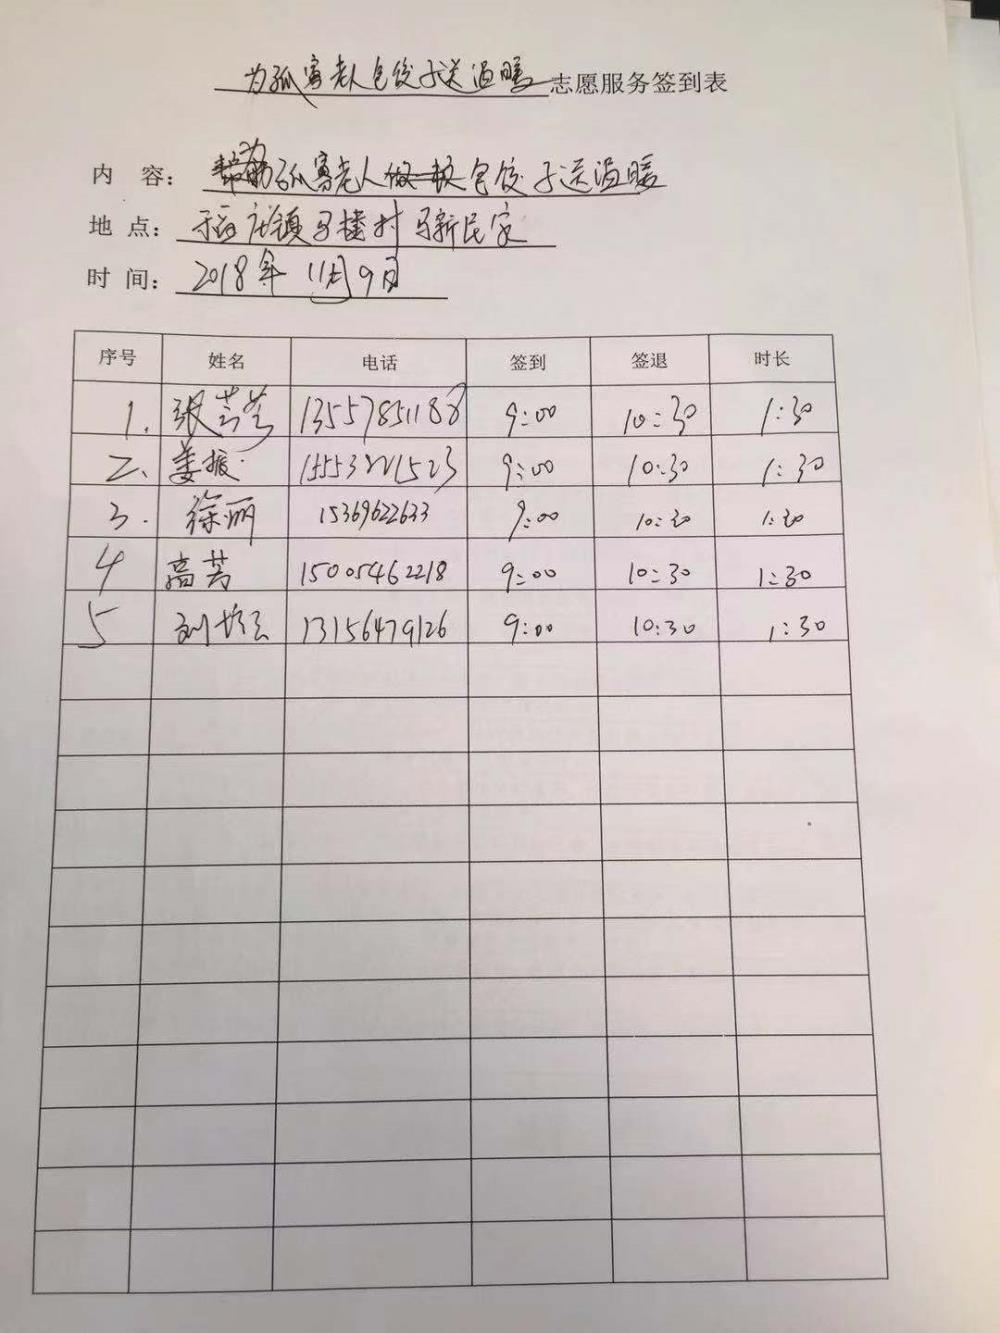 为孤寡老人包饺子送温暖志愿服务签到表
内 容: 为孤寡老人包饺子送温暖
地 点: 稻庄镇马楼村马新民家
时 间: 2018年 11月9日
序号 姓名 电话 签到 签退 时长
1. 张芸芸 13557851188 9:00 10:30 1:30
2. 姜振 15553221523 9:00 10:30 1:30
3. 徐丽 15369622633 9:00 10:30 1:30
4 高芳 15005462218 9:00 10:30 1:30
5 13156479126 9:00 10:30 1:30